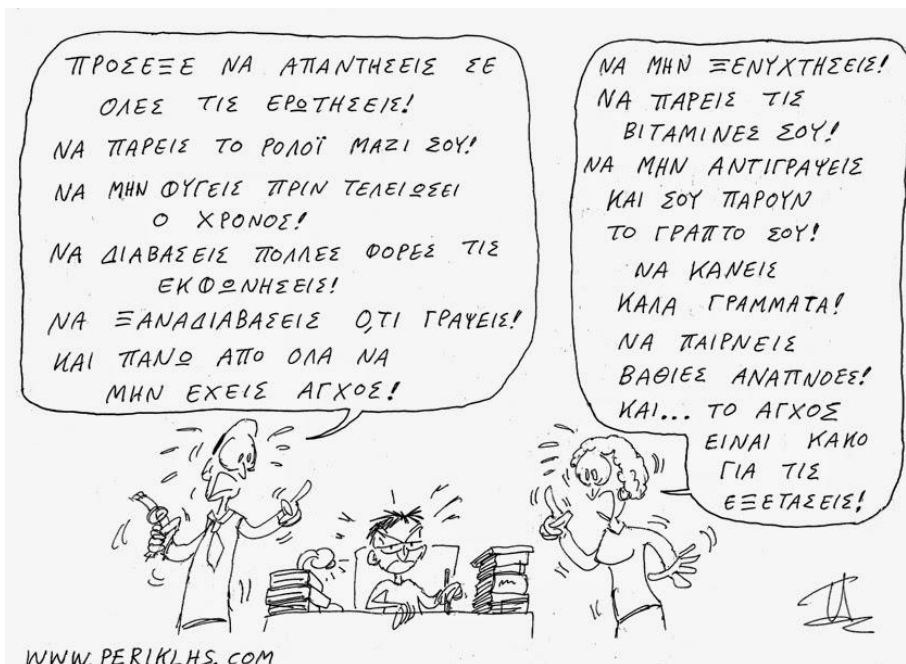 ΠΡΟΣΕΞΕ ΝΑ ΑΠΑΝΤΗΣΕΙΣ ΣΕ
ΟΛΕΣ ΤΙΣ ΕΡΩΤΗΣΕΙΣ!
ΝΑ ΠΑΡΕΙΣ ΤΟ ΡΟΛΟΪ ΜΑΖΙ ΣΟΥ!
ΝΑ ΜΗΝ ΦΥΓΕΙΣ ΠΡΙΝ ΤΕΛΕΙΩΣΕΙ
Ο ΧΡΟΝΟΣ!
ΝΑ ΔΙΑΒΑΣΕΙΣ ΠΟΛΛΕΣ ΦΟΡΕΣ ΤΙΣ
ΕΚΦΩΝΗΣΕΙΣ!
ΝΑ ΞΑΝΑΔΙΑΒΑΣΕΙΣ Ο,ΤΙ ΓΡΑΨΕΙΣ!
ΚΑΙ ΠΑΝΩ ΑΠΟ ΟΛΑ ΝΑ
ΜΗΝ ΕΧΕΙΣ ΑΓΧΟΣ!
ΝΑ ΜΗΝ ΞΕΝΥΧΤΗΣΕΙΣ!
ΝΑ ΠΑΡΕΙΣ ΤΙΣ
ΒΙΤΑΜΙΝΕΣ ΣΟΥ!
ΝΑ ΜΗΝ ΑΝΤΙΓΡΑΨΕΙΣ
ΚΑΙ ΣΟΥ ΠΑΡΟΥΝ
ΤΟ ΓΡΑΠΤΟ ΣΟΥ!
ΝΑ ΚΑΝΕΙΣ
ΚΑΛΑ ΓΡΑΜΜΑΤΑ!
ΝΑ ΠΑΙΡΝΕΙΣ
ΒΑΘΙΕΣ ΑΝΑΠΝΟΕΣ!
ΚΑΙ... ΤΟ ΑΓΧΟΣ
ΕΙΝΑΙ ΚΑΚΟ
ΓΙΑ ΤΙΣ
ΕΞΕΤΑΣΕΙΣ!
WWW.PERIKLHS.COM